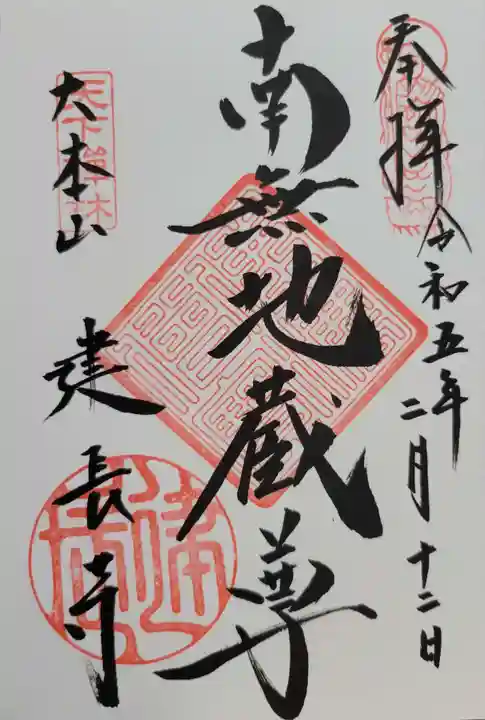 奉拝
令和五年二月十二日
南無地蔵尊
大本山
建長寺
天下禅林